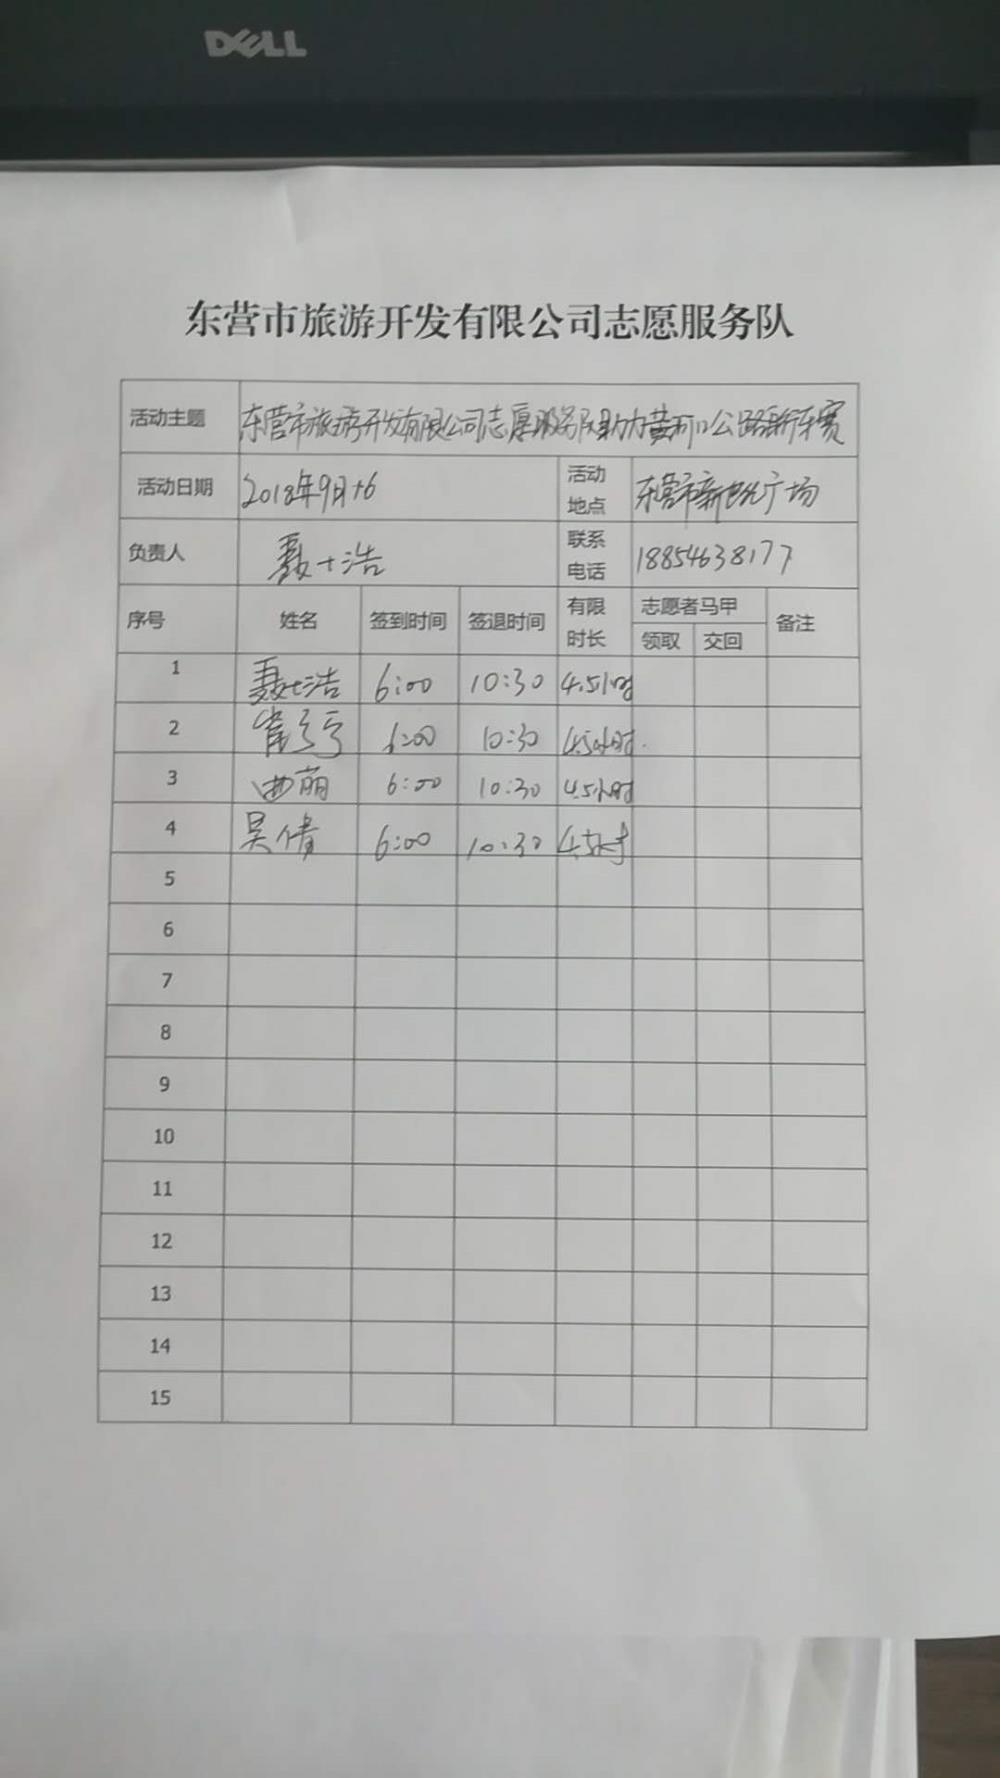 DELL
东营市旅游开发有限公司志愿服务队
活动主题 东营市旅游开发有限公司志愿服务队助力黄河口公路自行车赛
活动日期 2018年9月16 活动地点 东营市新世纪广场
负责人 聂士浩 联系电话 18854638177
序号 姓名 签到时间 签退时间 有限时长 志愿者马甲 备注
领取 交回
1 聂士浩 6:00 10:30 4.5小时
2 6:00 10:30 4.5小时
3 曲萌 6:00 10:30 4.5小时
4 吴倩 6:00 10:30 4.5小时
5
6
7
8
9
10
11
12
13
14
15